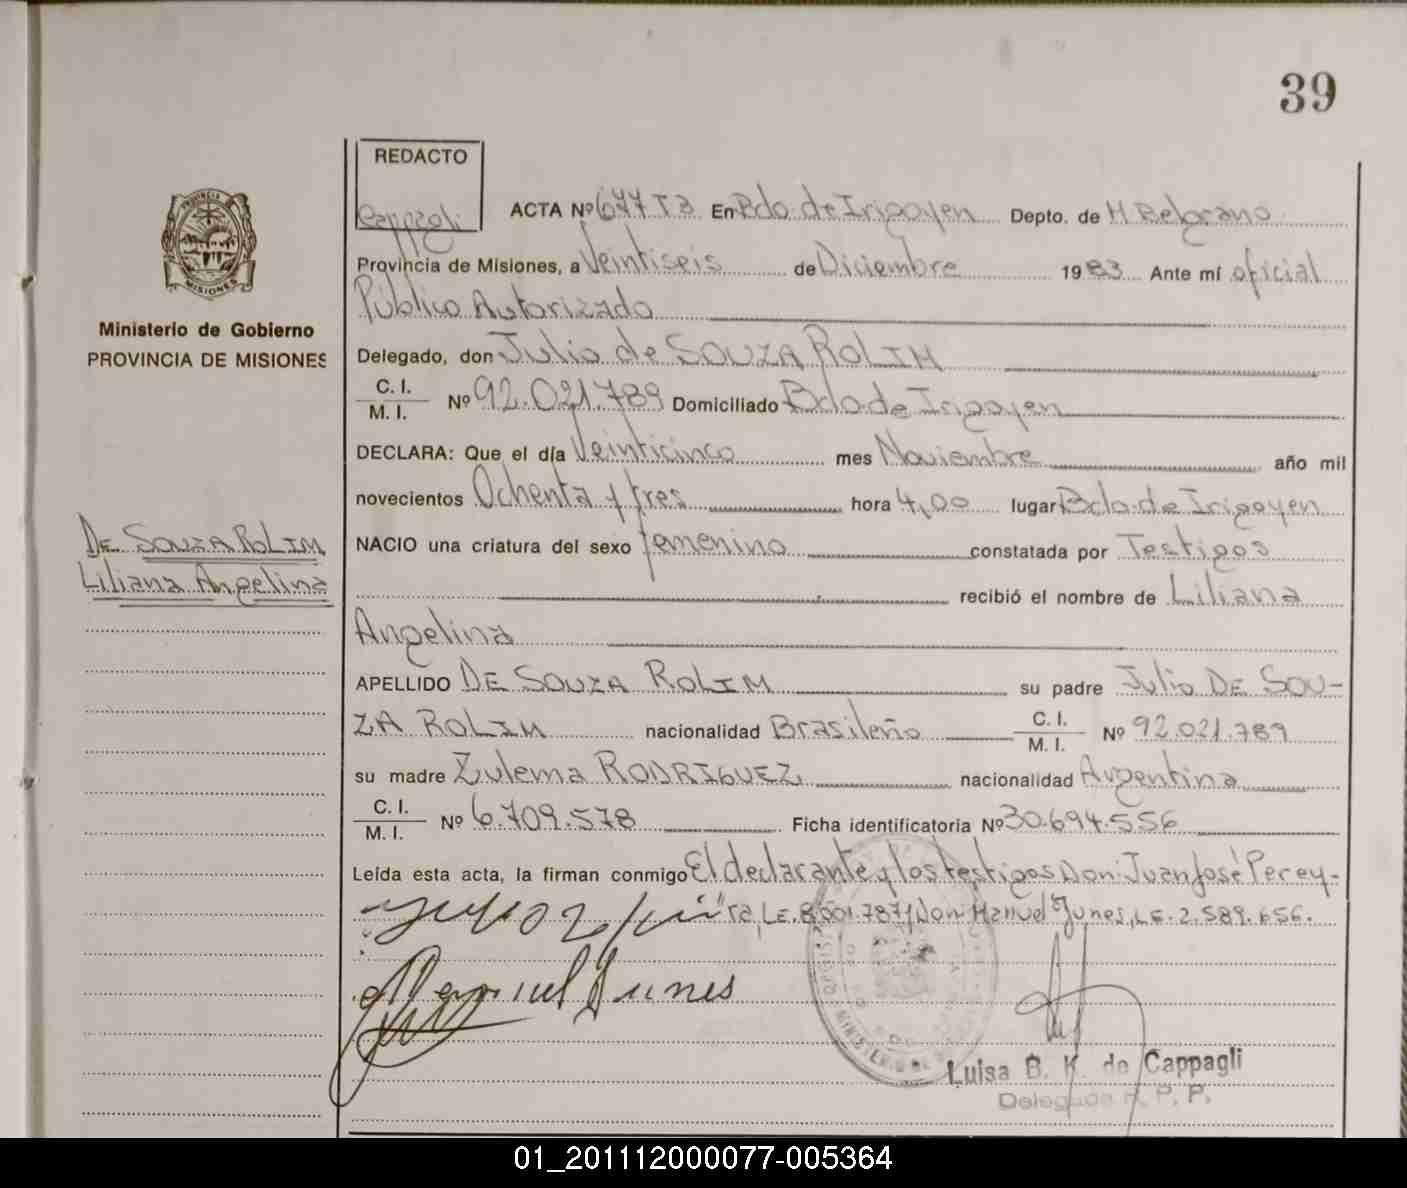 39
REDACTO
Cappagli
ACTA Nº 677 T3 En Bdo. de Irigoyen Depto. de M Belgrano
Provincia de Misiones, a Veintiseis de Diciembre 1983 Ante mí oficial
Público Autorizado
Delegado, don Julio de SOUZA ROLIM
C. I.
M. I. Nº 92.021.789 Domiciliado Bdo. de Irigoyen
DECLARA: Que el día Veinticinco mes Noviembre año mil
novecientos Ochenta y tres hora 4,00 lugar Bdo. de Irigoyen
NACIO una criatura del sexo femenino constatada por Testigos
recibió el nombre de Liliana
Angelina
APELLIDO DE SOUZA ROLIM su padre Julio DE SOU-
ZA ROLIM nacionalidad Brasileño C. I. M. I. Nº 92.021.789
su madre Zulema RODRIGUEZ nacionalidad Argentina
C. I.
M. I. Nº 6.709.578 Ficha identificatoria Nº 30.694.556
Leída esta acta, la firman conmigo El declarante y los testigos Don: Juan José Perey-
ra, L.E. 8.001.787 y Don Manuel Junes, L.E. 2.589.656.
Manuel Junes
Luisa B. K. de Cappagli
Delegada R. P. P.
PROVINCIA DE
MISIONES
Ministerio de Gobierno
PROVINCIA DE MISIONES
DE SOUZA ROLIM
Liliana Angelina
01_201112000077-005364